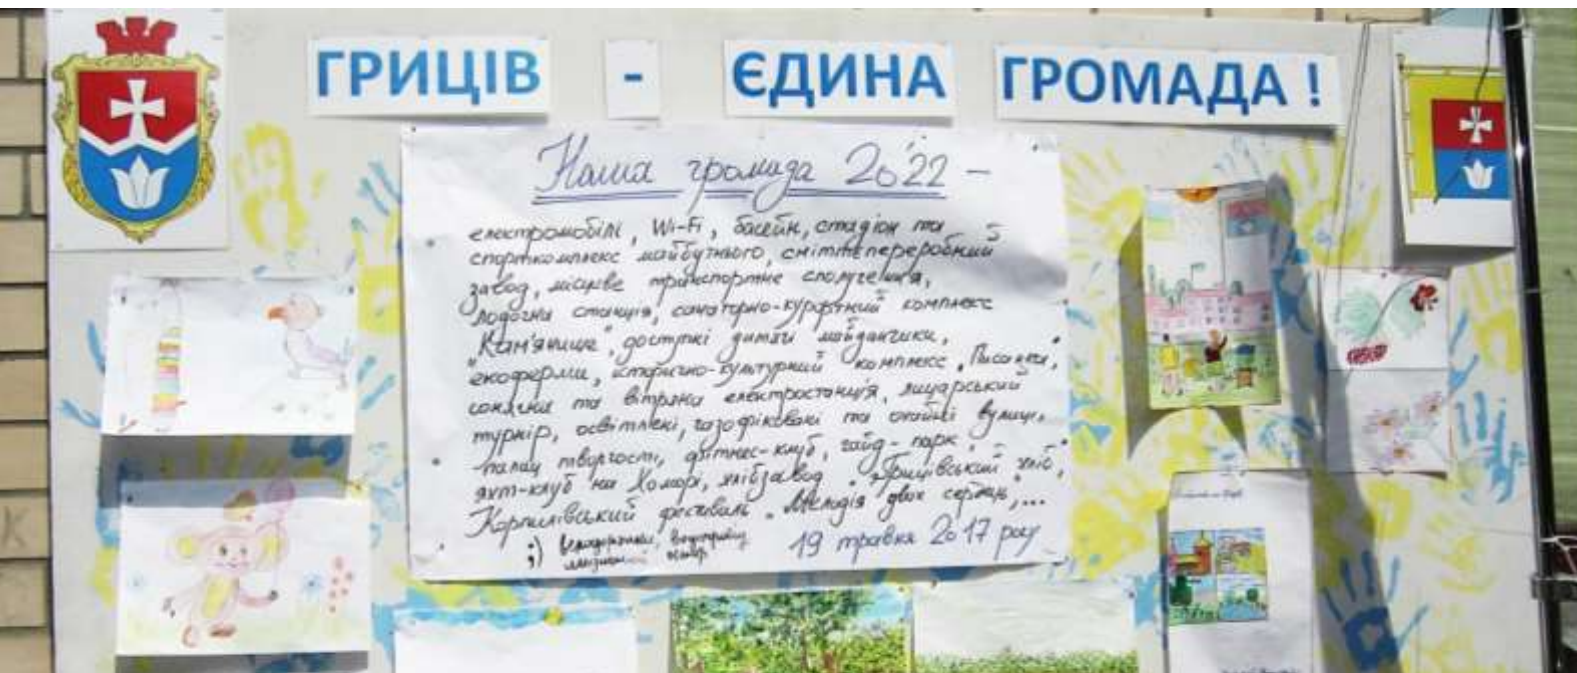 ГРИЦІВ - ЄДИНА ГРОМАДА !
Наша громада 20'22 –
електромобілі, Wi-Fi, басейн, стадіон та
спорткомплекс майбутнього, сміттєпереробний
завод, місцеве транспортне сполучення,
лодочна станція, санаторно-курортний комплекс
"Кам'яниця", доступні дитячі майданчики,
екоферми, історично-культурний комплекс
сонячна та вітряна електростанція, лицарський
турнір, освітлені, газофіковані та охайні вулиці,
палац творчості, фітнес-клуб, гайд-парк,
яхт-клуб на Хоморі, хлібзавод "Грицівський хліб",
Корчилівський фестиваль "Мелодія двох сердець",...
;)
19 травня 2017 року